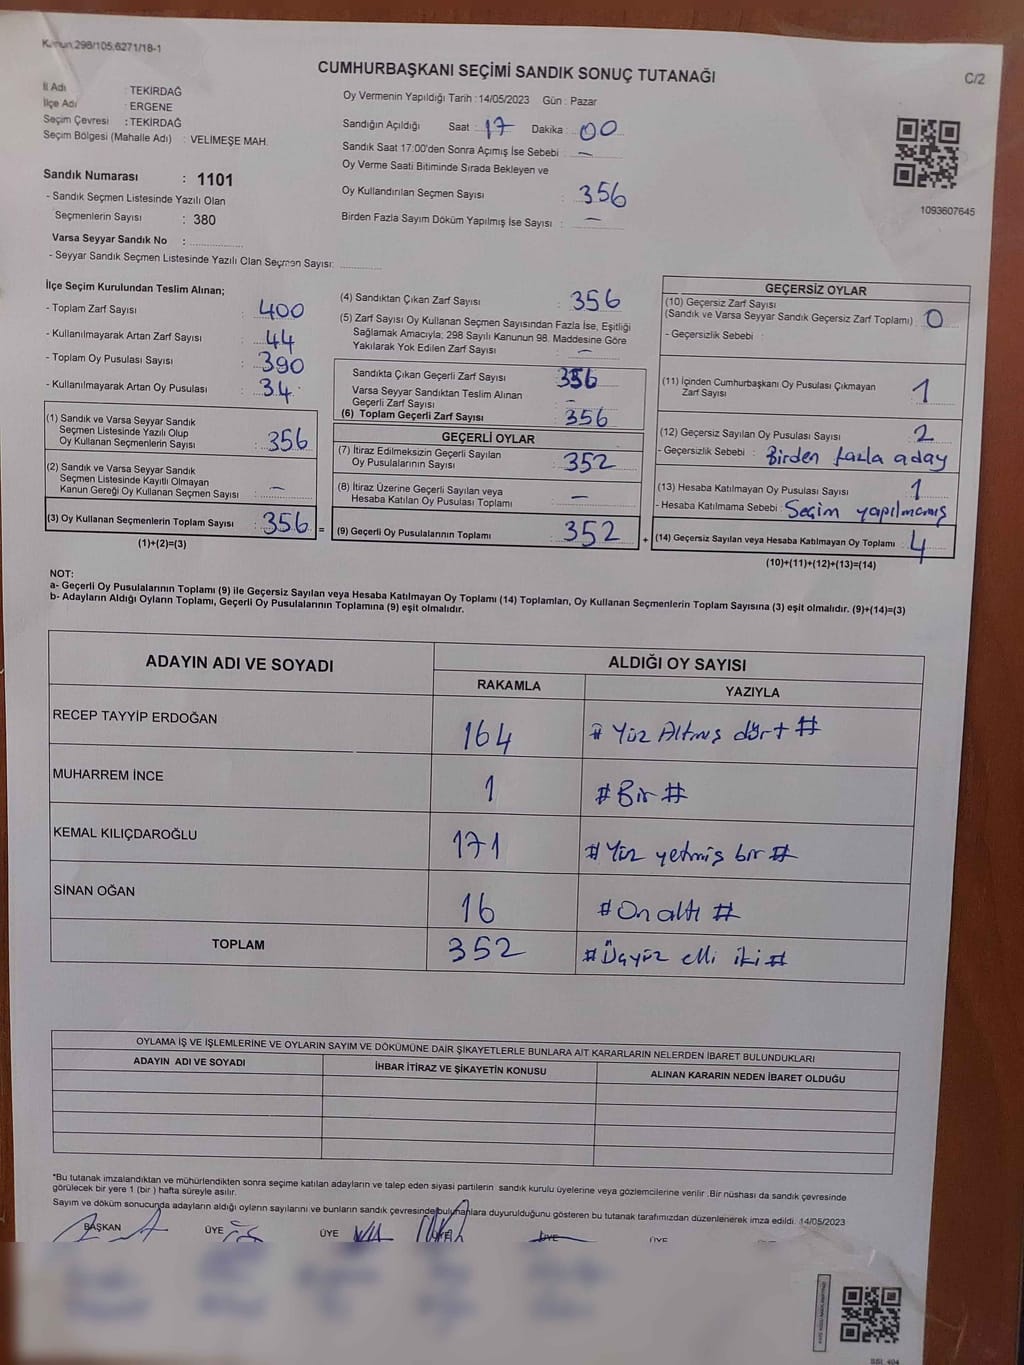 Kanun:298/105,6271/18-1
CUMHURBAŞKANI SEÇİMİ SANDIK SONUÇ TUTANAĞI
C/2
İl Adı : TEKİRDAĞ
İlçe Adı : ERGENE
Seçim Çevresi : TEKİRDAĞ
Seçim Bölgesi (Mahalle Adı) : VELİMEŞE MAH.
Sandık Numarası : 1101
- Sandık Seçmen Listesinde Yazılı Olan
Seçmenlerin Sayısı : 380
Varsa Seyyar Sandık No :
- Seyyar Sandık Seçmen Listesinde Yazılı Olan Seçmen Sayısı:
Oy Vermenin Yapıldığı Tarih : 14/05/2023 Gün : Pazar
Sandığın Açıldığı Saat : 17 Dakika : 00
Sandık Saat 17:00'den Sonra Açımış İse Sebebi : —
Oy Verme Saati Bitiminde Sırada Bekleyen ve
Oy Kullandırılan Seçmen Sayısı : 356
Birden Fazla Sayım Döküm Yapılmış İse Sayısı : —
1093607645
İlçe Seçim Kurulundan Teslim Alınan;
- Toplam Zarf Sayısı : 400
- Kullanılmayarak Artan Zarf Sayısı : 44
- Toplam Oy Pusulası Sayısı : 390
- Kullanılmayarak Artan Oy Pusulası : 34
(1) Sandık ve Varsa Seyyar Sandık
Seçmen Listesinde Yazılı Olup
Oy Kullanan Seçmenlerin Sayısı : 356
(2) Sandık ve Varsa Seyyar Sandık
Seçmen Listesinde Kayıtlı Olmayan
Kanun Gereği Oy Kullanan Seçmen Sayısı : —
(3) Oy Kullanan Seçmenlerin Toplam Sayısı : 356 =
(1)+(2)=(3)
(4) Sandıktan Çıkan Zarf Sayısı : 356
(5) Zarf Sayısı Oy Kullanan Seçmen Sayısından Fazla İse, Eşitliği
Sağlamak Amacıyla; 298 Sayılı Kanunun 98. Maddesine Göre
Yakılarak Yok Edilen Zarf Sayısı : —
Sandıkta Çıkan Geçerli Zarf Sayısı : 356
Varsa Seyyar Sandıktan Teslim Alınan
Geçerli Zarf Sayısı : —
(6) Toplam Geçerli Zarf Sayısı : 356
GEÇERLİ OYLAR
(7) İtiraz Edilmeksizin Geçerli Sayılan
Oy Pusulalarının Sayısı : 352
(8) İtiraz Üzerine Geçerli Sayılan veya
Hesaba Katılan Oy Pusulası Toplamı : —
(9) Geçerli Oy Pusulalarının Toplamı : 352 +
GEÇERSİZ OYLAR
(10) Geçersiz Zarf Sayısı
(Sandık ve Varsa Seyyar Sandık Geçersiz Zarf Toplamı) : 0
- Geçersizlik Sebebi :
(11) İçinden Cumhurbaşkanı Oy Pusulası Çıkmayan
Zarf Sayısı : 1
(12) Geçersiz Sayılan Oy Pusulası Sayısı : 2
- Geçersizlik Sebebi : Birden fazla aday
(13) Hesaba Katılmayan Oy Pusulası Sayısı : 1
- Hesaba Katılmama Sebebi : Seçim yapılmamış
(14) Geçersiz Sayılan veya Hesaba Katılmayan Oy Toplamı : 4
(10)+(11)+(12)+(13)=(14)
NOT:
a- Geçerli Oy Pusulalarının Toplamı (9) ile Geçersiz Sayılan veya Hesaba Katılmayan Oy Toplamı (14) Toplamları, Oy Kullanan Seçmenlerin Toplam Sayısına (3) eşit olmalıdır. (9)+(14)=(3)
b- Adayların Aldığı Oyların Toplamı, Geçerli Oy Pusulalarının Toplamına (9) eşit olmalıdır.
ADAYIN ADI VE SOYADI
ALDIĞI OY SAYISI
RAKAMLA YAZIYLA
RECEP TAYYİP ERDOĞAN 164 # Yüz Altmış dört #
MUHARREM İNCE 1 # Bir #
KEMAL KILIÇDAROĞLU 171 # Yüz yetmiş bir #
SİNAN OĞAN 16 # On altı #
TOPLAM 352 # Üçyüz elli iki #
OYLAMA İŞ VE İŞLEMLERİNE VE OYLARIN SAYIM VE DÖKÜMÜNE DAİR ŞİKAYETLERLE BUNLARA AİT KARARLARIN NELERDEN İBARET BULUNDUKLARI
ADAYIN ADI VE SOYADI İHBAR İTİRAZ VE ŞİKAYETİN KONUSU ALINAN KARARIN NEDEN İBARET OLDUĞU
*Bu tutanak imzalandıktan ve mühürlendikten sonra seçime katılan adayların ve talep eden siyasi partilerin sandık kurulu üyelerine veya gözlemcilerine verilir .Bir nüshası da sandık çevresinde
görülecek bir yere 1 (bir ) hafta süreyle asılır.
Sayım ve döküm sonucunda adayların aldığı oyların sayılarını ve bunların sandık çevresinde bulunanlara duyurulduğunu gösteren bu tutanak tarafımızdan düzenlenerek imza edildi. 14/05/2023
BAŞKAN ÜYE ÜYE ÜYE ÜYE ÜYE